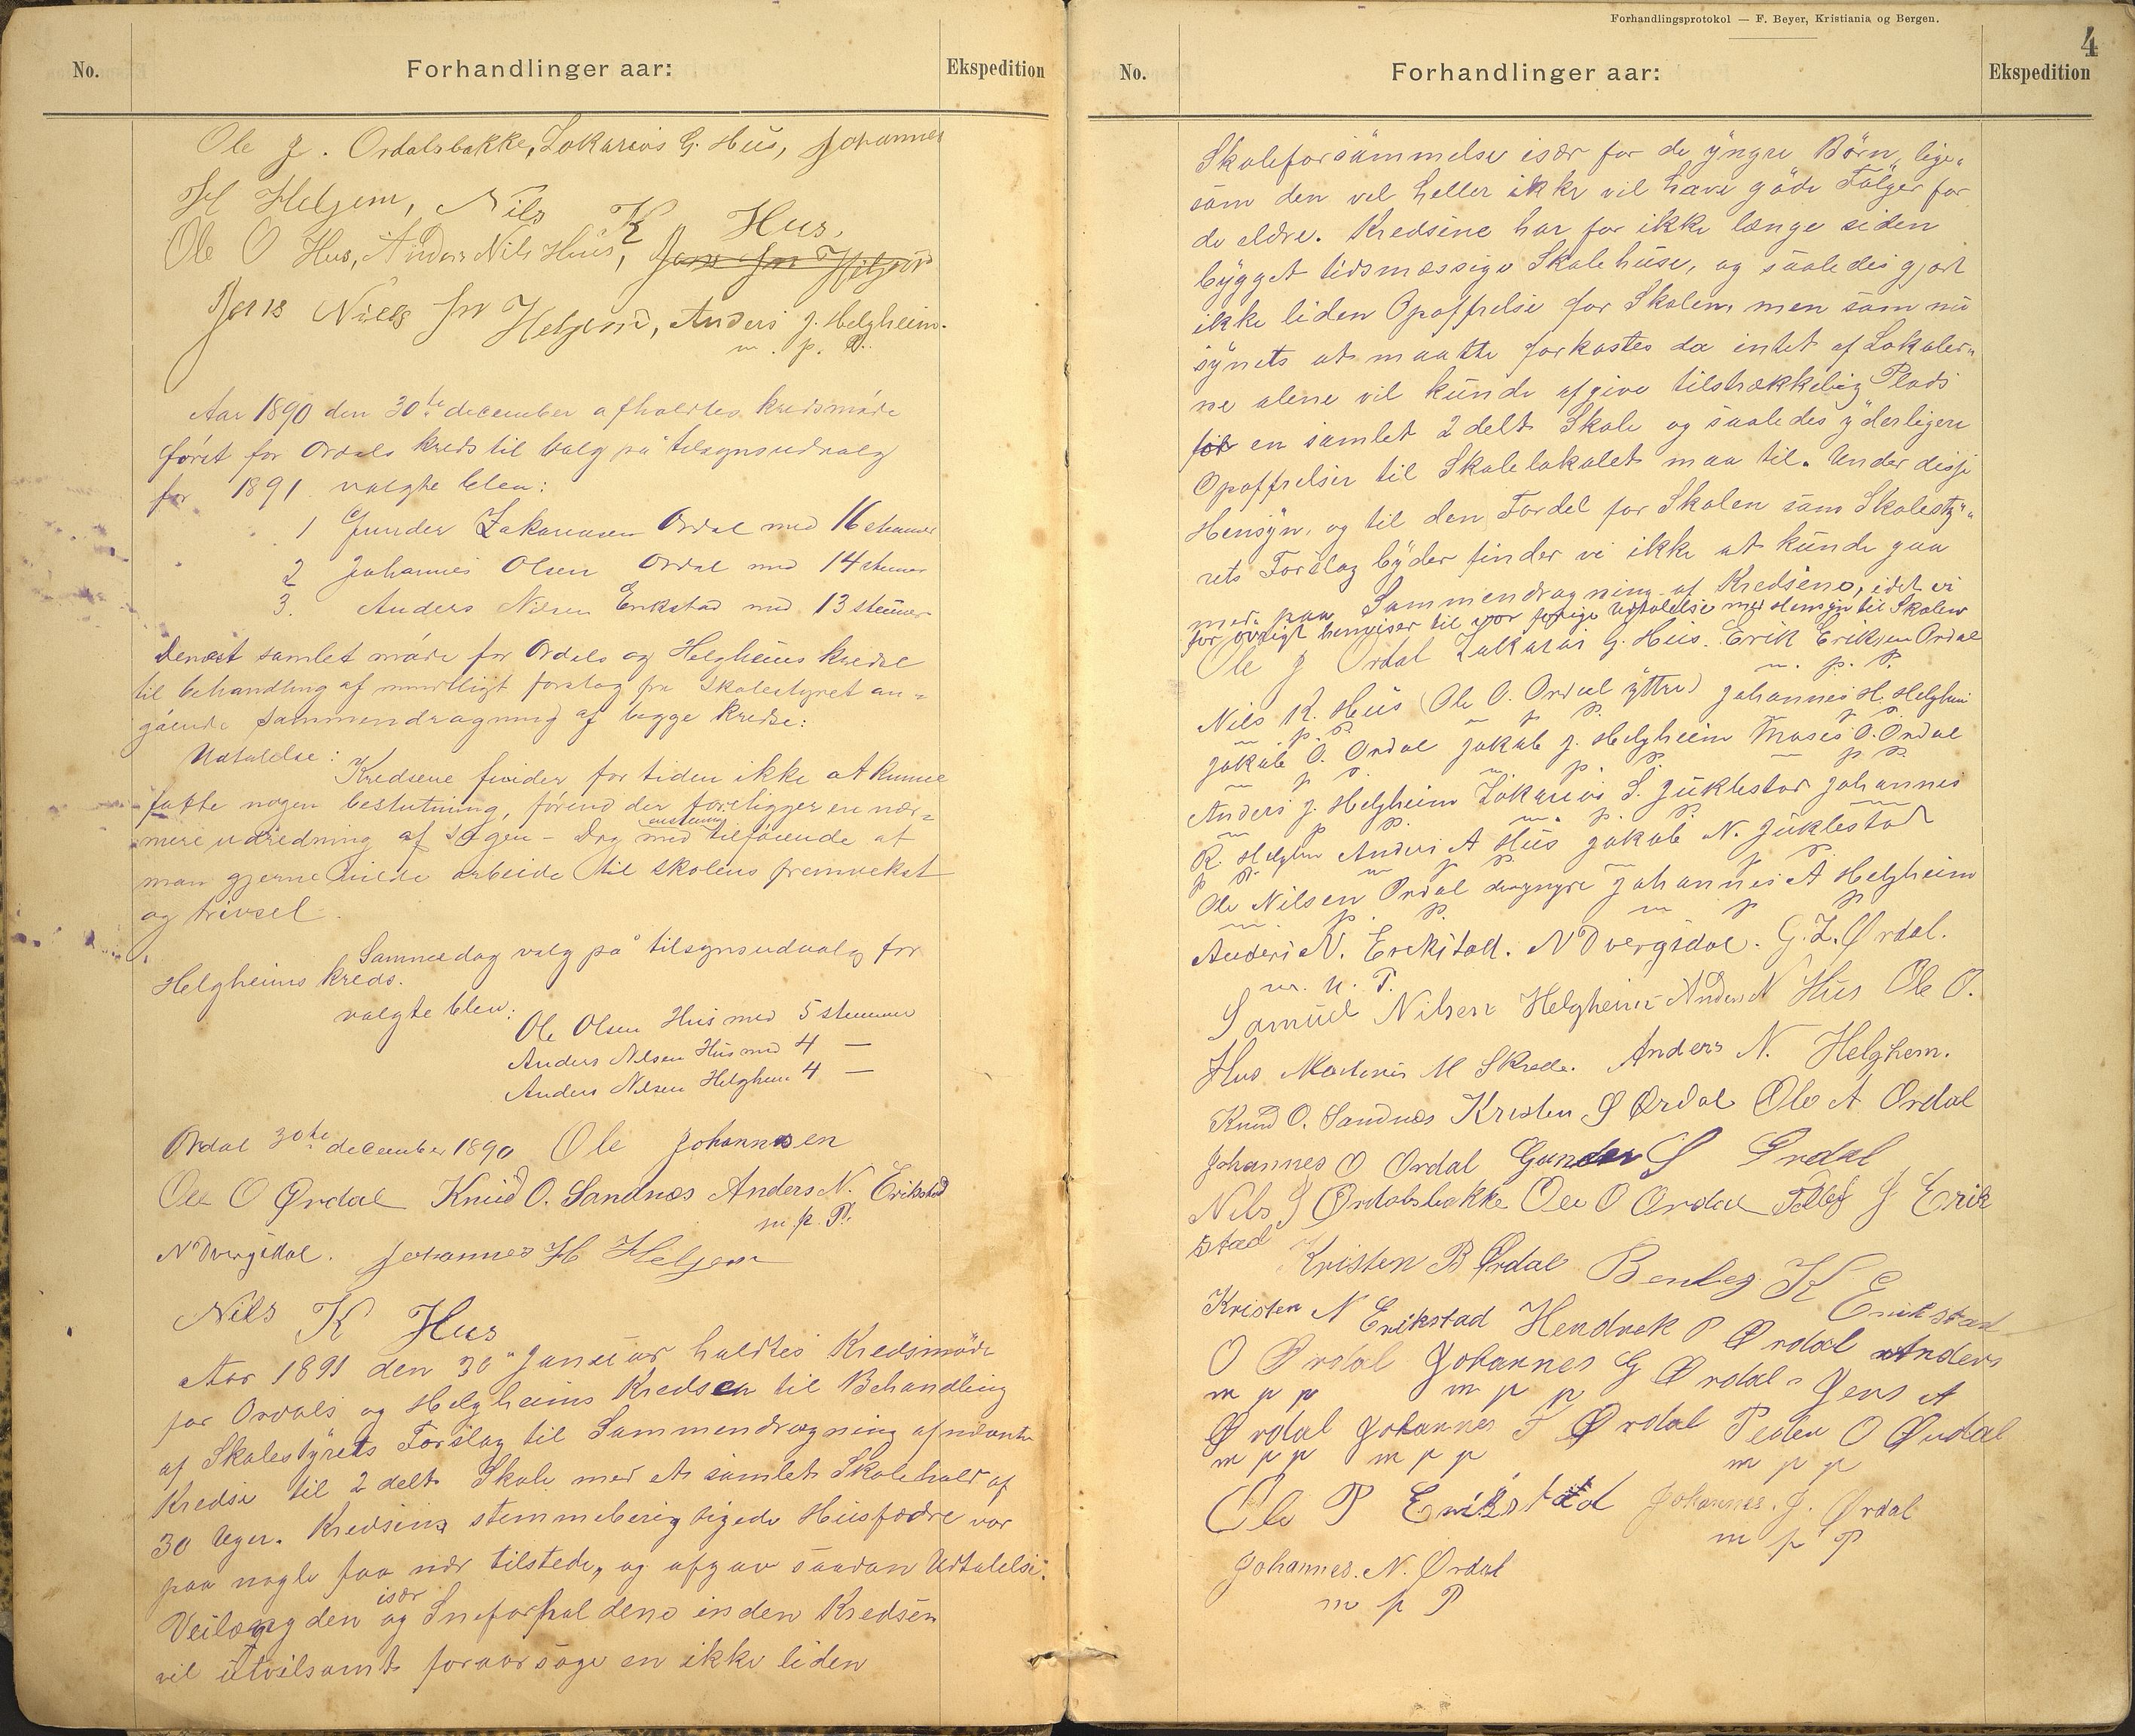 No.
Forhandlinger aar:
Ekspedition
Ole J. Ordalsbakke, Zakarias G. Hus, Johannes
H Helgem, Nils K Hus,
Ole O Hus, Anders Nils Hus,
Jens Niels sn Helgem, Anders J. Helgheim.
m. p. P.
Aar 1890 den 30te december afholdtes kredsmøde
først for Ordals kreds til valg på tilsynsudvalg
for 1891. valgte blev:
1 Gunder Zakariasen Ordal med 16 stemmer
2 Johannes Olsen Ordal med 14 stemmer
3. Anders Nilsen Erikstad med 13 stemmer
Dernæst samlet møde for Ordals og Helgheims kredse
til behandling af mundtligt forslag fra skolestyret an=
gående sammendragning af begge kredse:
Udtalelse:
Kredsene finder for tiden ikke at kunne
fatte nogen beslutning, førend der foreligger en nær=
mere udredning af sagen – Dog med tilføiende at
man gjerne vilde arbeide til skolens fremvekst
og trivsel.
Samme dag valg på tilsynsudvalg for
Helgheims kreds.
valgte blev:
Ole Olsen Hus med 5 stemmer
Anders Nilsen Hus med 4 —
Anders Nilsen Helghem 4 —
Ordal 30te december 1890 Ole Johannesen
Ole O Ørdal Knud O. Sandnæs Anders N. Erikstad
m p. P.
N Dvergsdal. Johannes H Helgem
Nils K Hus
Aar 1891 den 30" Januar holdtes Kredsmöde
for Ordals og Helgheims Kredser til Behandling
af Skolestyrets Forslag til Sammendragning af nævnte
Kredse til 2 delt Skole med et samlet Skolehold af
30 Uger. Kredsens stemmeberigtigede Husfædre var
paa nogle faa nær tilstede, og afgav saadan Udtalelse:
især
Veilængden og Sneforholdene inden Kredsen
vil utvilsomt foraarsage en ikke liden
Forhandlingsprotokol — F. Beyer, Kristiania og Bergen.
4
No.
Forhandlinger aar:
Ekspedition
Skoleforsömmelse især for de yngre Börn, lige"
som den vel heller ikke vil have gode Fölger for
de eldre. Kredsene har for ikke længe siden
bygget tidsmæssige Skolehuse, og saaledes gjort
ikke liden Opoffrelse for Skolen, men som nu
synets at maatte forkastes da intet af Lokaler"
ne alene vil kunde afgive tilstrækkelig Plads
for en samlet 2 delt Skole og saaledes yderligere
Opoffrelser til Skolelokalet maa til. Under disse
Hensyn, og til den Fordel for Skolen som Skolesty"
rets Forslag byder finder vi ikke at kunde gaa
med paa Sammendragning af Kredsene, idet vi
for övrigt henviser til vor forige Udtalelse med Hensyn til Skolen
Ole J Ordal Zakarias G. Hus. Erik Eriksen Ordal
m. p. P.
Nils K. Hus (Ole O. Ordal yttre) Johannes H. Helghem
m. p. P. m p P. p P.
Jakob O. Ordal Jakob J. Helgheim Moses O. Ordal
m p P. m p. P. m p P.
Anders J. Helgheim Zakarias S. Juklestad Johannes
m p P. m. p. P.
R. Helghem Anders A Hus Jakob N. Juklestad
p P. m p P. m p P.
Ole Nilsen Ordal den yngre Johannes A Helgheim
m. p. P. m p P
Anders N. Erikstad. N Dvergsdal. G. Z. Ørdal.
m. u. P.
Samuel Nilsen Helgheim Anders N Hus Ole O.
Hus M Skrede. Anders N. Helghem.
Knud O. Sandnæs Kristen S Ørdal Ole A Ordal
Johannes O Ordal Gunder S Ørdal
Nils J Ørdalsbakke Ole O Ordal J Erik
stad
Kristen B Ørdal K Erikstad
Kristen N Erikstad Hendrek P Ørdal Anders
O Ørdal Johannes G Ørdal. Jens A
m p p m p p
Ørdal Johannes T Ørdal Peder O Ørdal
m p p m p p m p p
Ole P Erikstad Johannes. J. Ørdal
m p P
Johannes. N. Ørdal
m p P